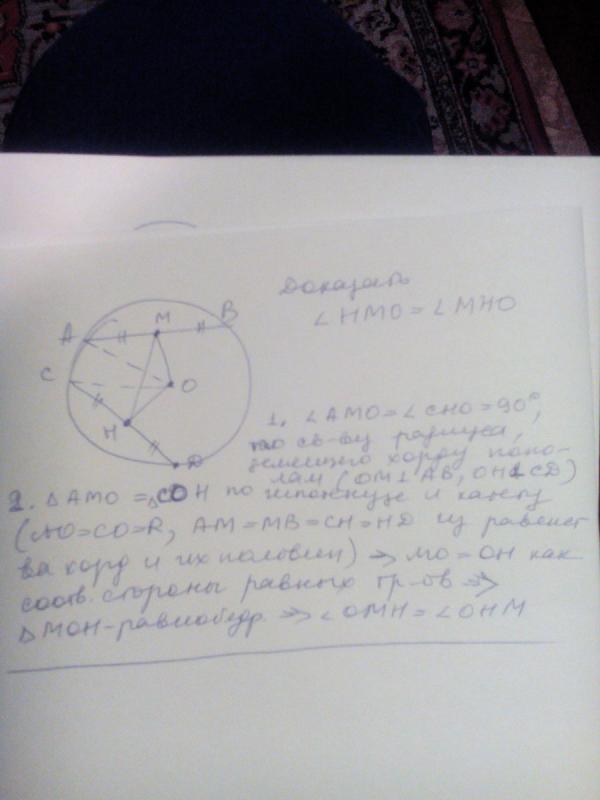 Доказать
∠HMO = ∠MHO
A
M
B
C
O
H
D
1. ∠AMO = ∠CHO = 90°,
по св-ву радиуса,
делящего хорду попо-
лам (OM⊥AB, OH⊥CD)
2. △AMO = △COH по гипотенузе и катету
(AO=CO=R, AM=MB=CH=HD из равенст
ва хорд и их половин) ⇒ MO=OH как
соотв. стороны равных тр-ов ⇒
△MOH-равнобедр. ⇒ ∠OMH = ∠OHM